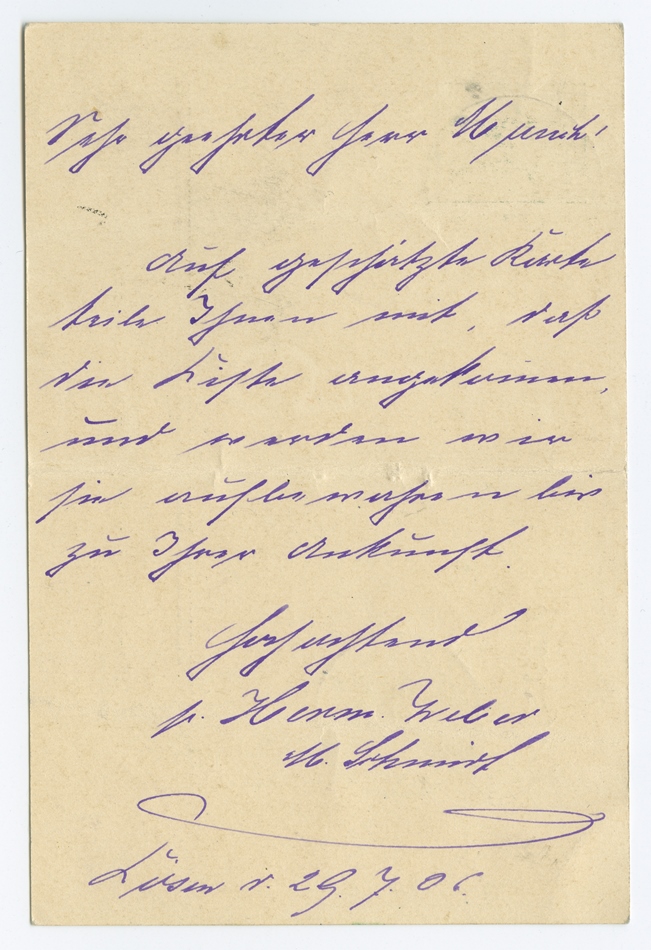 Sehr geehrter Herr Munch!
Auf geschätzte Karte
teile Ihnen mit, daß
die Kiste angekommen,
und werden wir
sie aufbewahren bis
zu Ihrer Ankunft.
Hochachtend
p. Herm. Weber
M. Schmidt
Kösen d. 29. 7. 06.